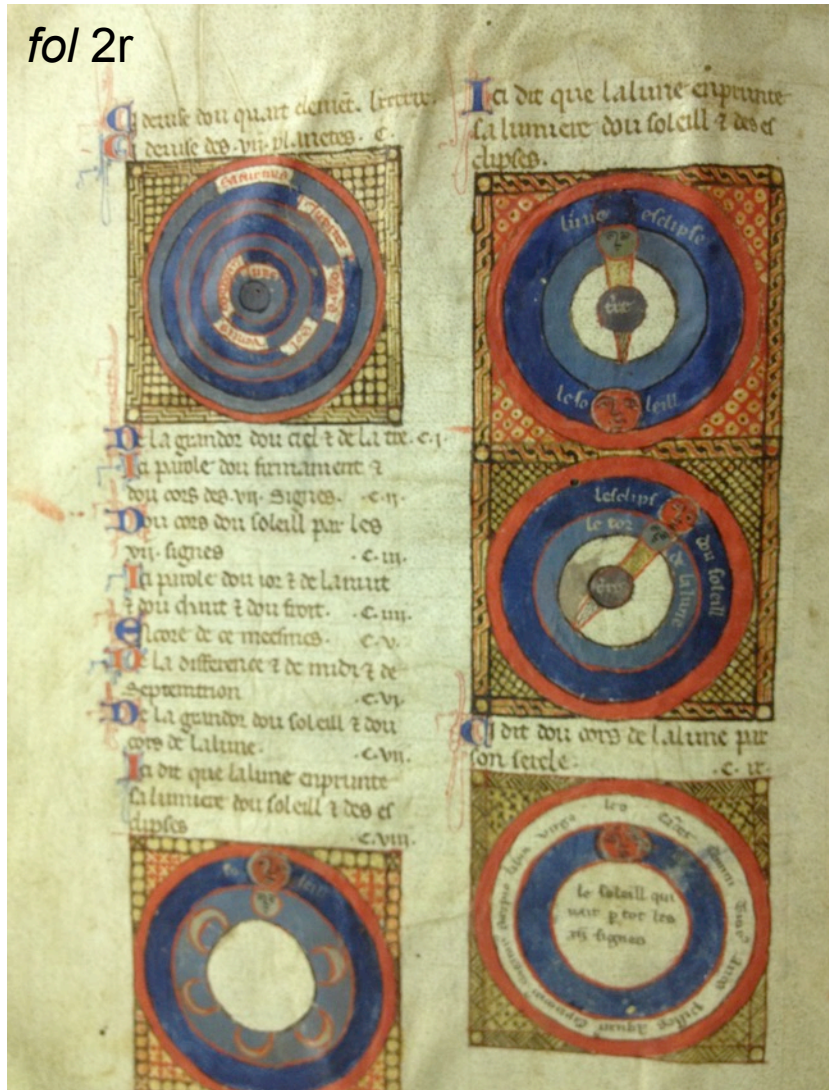 fol 2r
Ci deuise dou quart element. lxxxxix.
Ci deuise des .vij. planetes. c.
saturnus
Iupiter
mars
soleil
uenus
lune
De la grandor dou ciel & de la tre. c.i.
Ici parole dou firmament &
dou cors des .vij. signes. .c.ij.
Dou cors dou soleill par les
vij. signes .c.iij.
Ici parole dou ior & de la nuit
& dou chaut & dou froit. .c.iiij.
Encore de ce meesmes. c.v.
De la difference & de midi & de
septemtrion .c.vi.
De la grandor dou soleill & dou
cors de la lune. .c.vij.
Ici dit que la lune enprunte
sa lumiere dou soleill & des es
clipses .c.viij.
lo soleill
Ici dit que la lune enprunte
sa lumiere dou soleill & des es
clipses.
lune esclipse
terre
le so leill
lesclips dou soleill
le tor de la lune
terre
Ci dit dou cors de la lune par
son sercle. .c.ix.
leo cancer gemini Taurus Aries Pisces Aquarius Capricornus sagittarius scorpio libra virgo
le soleill qui
uait p tot les
xij signes